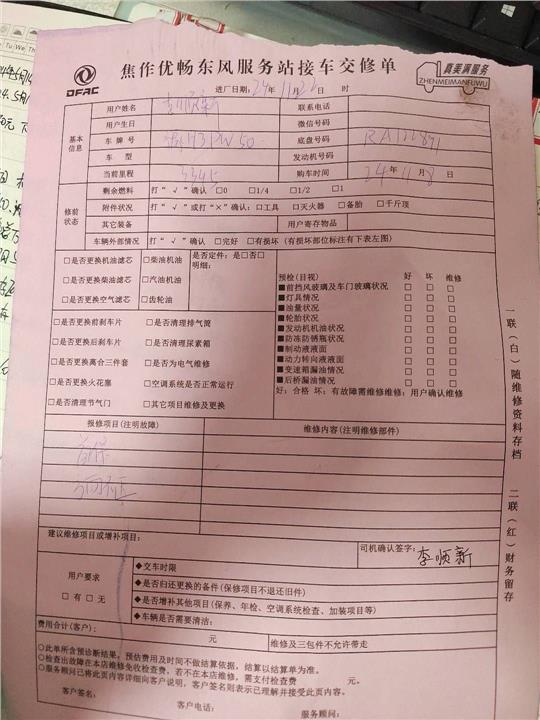 DFAC
焦作优畅东风服务站接车交修单
真美满服务
ZHENMEIMANFUWU
进厂日期：24年11月22日 时
基本信息
用户姓名 李顺新 联系电话
用户生日 微信号码
车牌号 底盘号码 RA122891
车型 发动机号码
当前里程 3345 购车时间 24年11月8日
修前状态
剩余燃料 打“√”确认 □0 □1/4 □1/2 □1
附件状况 打“√”或打“×”确认：□工具 □灭火器 □备胎 □千斤顶
其它装备 用户寄存物品
车辆外部情况 打“√”确认 □完好 □有损坏（有损坏部位标注有下表左图）
□是否更换机油滤芯 □柴油机油
□是否更换柴油滤芯 □汽油机油
□是否更换空气滤芯 □齿轮油
是否定件：是□否□
明细：
□是否更换前刹车片 □是否清理排气筒
□是否更换后刹车片 □是否清理尿素箱
□是否更换离合三件套 □是否为电气维修
□是否更换火花塞 □空调系统是否正常运行
□是否清理节气门 □其它项目维修及更换
预检（目视） 好 坏 维修
■前挡风玻璃及车门玻璃状况 □ □ □
■灯具情况 □ □ □
■油量状况 □ □ □
■轮胎状况 □ □ □
■发动机机油状况 □ □ □
■防冻防锈瓶状况 □ □ □
■制动液液面 □ □ □
■动力转向液液面 □ □ □
■变速箱漏油情况 □ □ □
■后桥漏油情况 □ □ □
好：合格 坏：有故障需维修维修：用户确认维修
报修项目（注明故障） 维修内容（注明维修部件）
首保
建议维修项目或增补项目：
司机确认签字：李顺新
用户要求
□有 □无
◆交车时限
◆是否归还更换的备件（保修项目不退还旧件）
◆是否增补其他项目（保养、年检、空调系统检查、加装项目等）
◆车辆是否需要清洁：
费用合计（客户）： 元 维修及三包件不允许带走
○此单所含预诊断结果，预估费用及时间不做结算依据，结算以结算单为准。
○检查出故障在本店维修免收检查费，若不在本店维修，需支付检查费 元。
○服务顾问已将此页内容详细向客户说明，客户签名则表示已理解并接受此页内容。
客户签名： 客户电话： 服务顾问：
一联（白）随维修资料存档 二联（红）财务留存